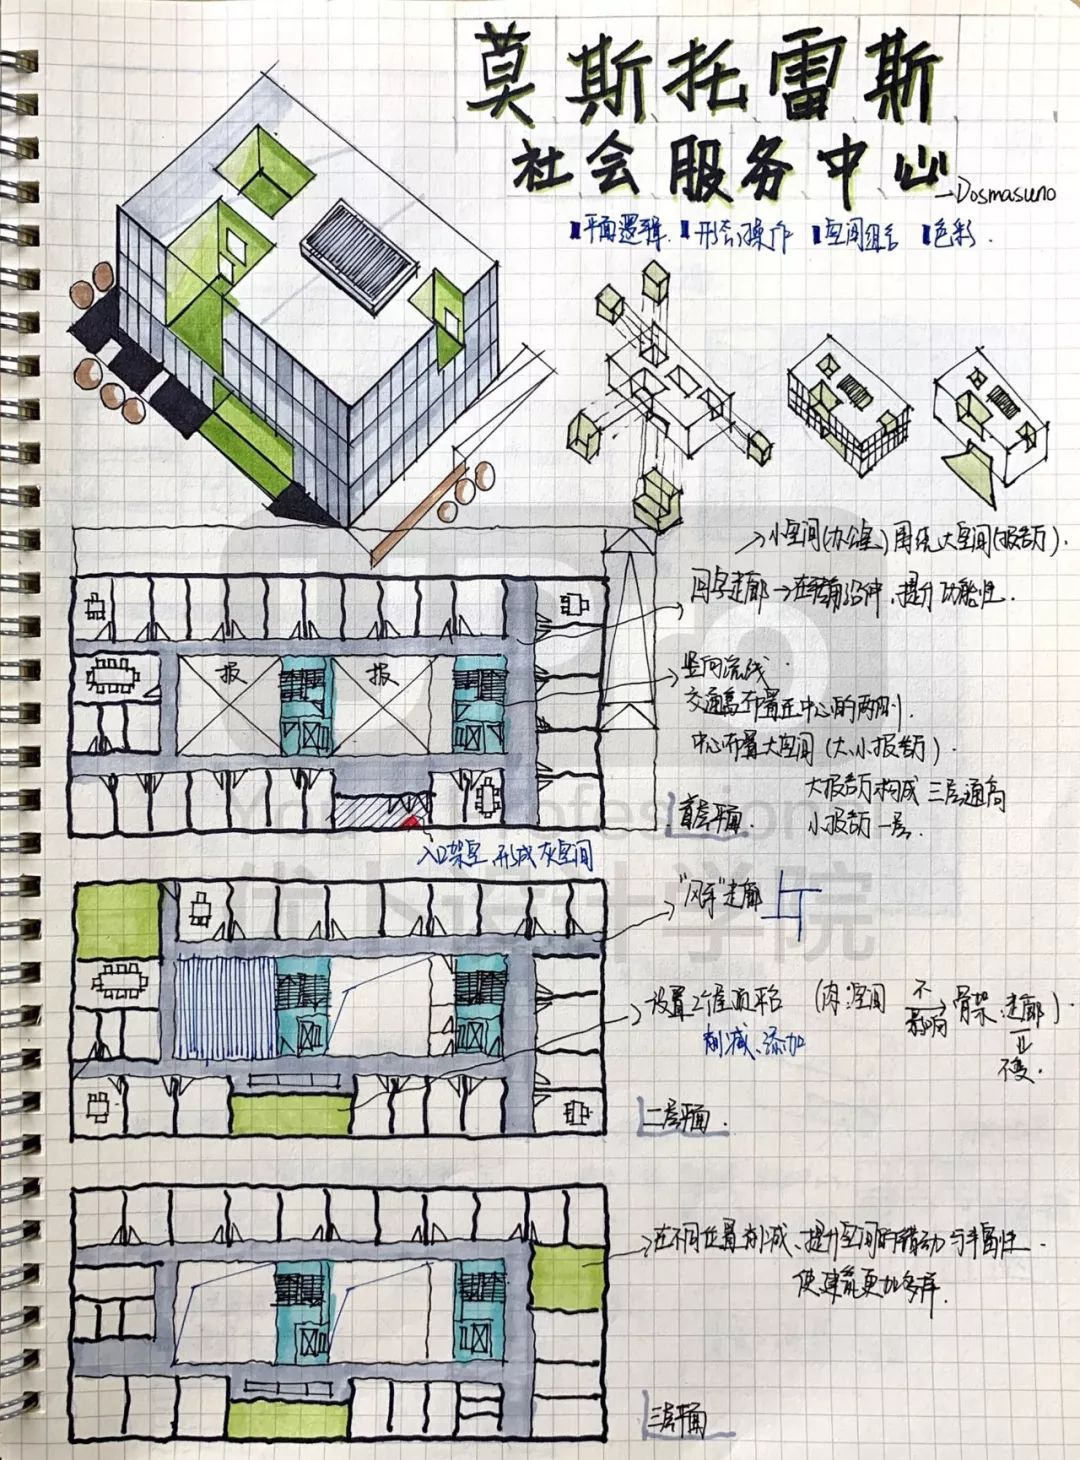 莫斯托雷斯
社会服务中心
→Dosmasuno
平面逻辑 形态操作 空间组合 色彩.
→小空间(办公室)围绕大空间(报告厅).
回字走廊→在转角沿伸,提升功能性.
竖向流线.
交通离布置在中心的两侧.
中心布置大空间(大小报告厅).
大报告厅构成三层通高
小报告厅一层.
报
报
首层平面.
入口架空,形成灰空间
"风车"走廊
设置2个屋顶平台(肉:空间 不影响→骨架:走廊).
削减、添加
不变.
二层平面.
在不同位置削减、提升空间的 动与丰富性.
使 能更加多样.
三层平面
Your Professional
优卜设计学院